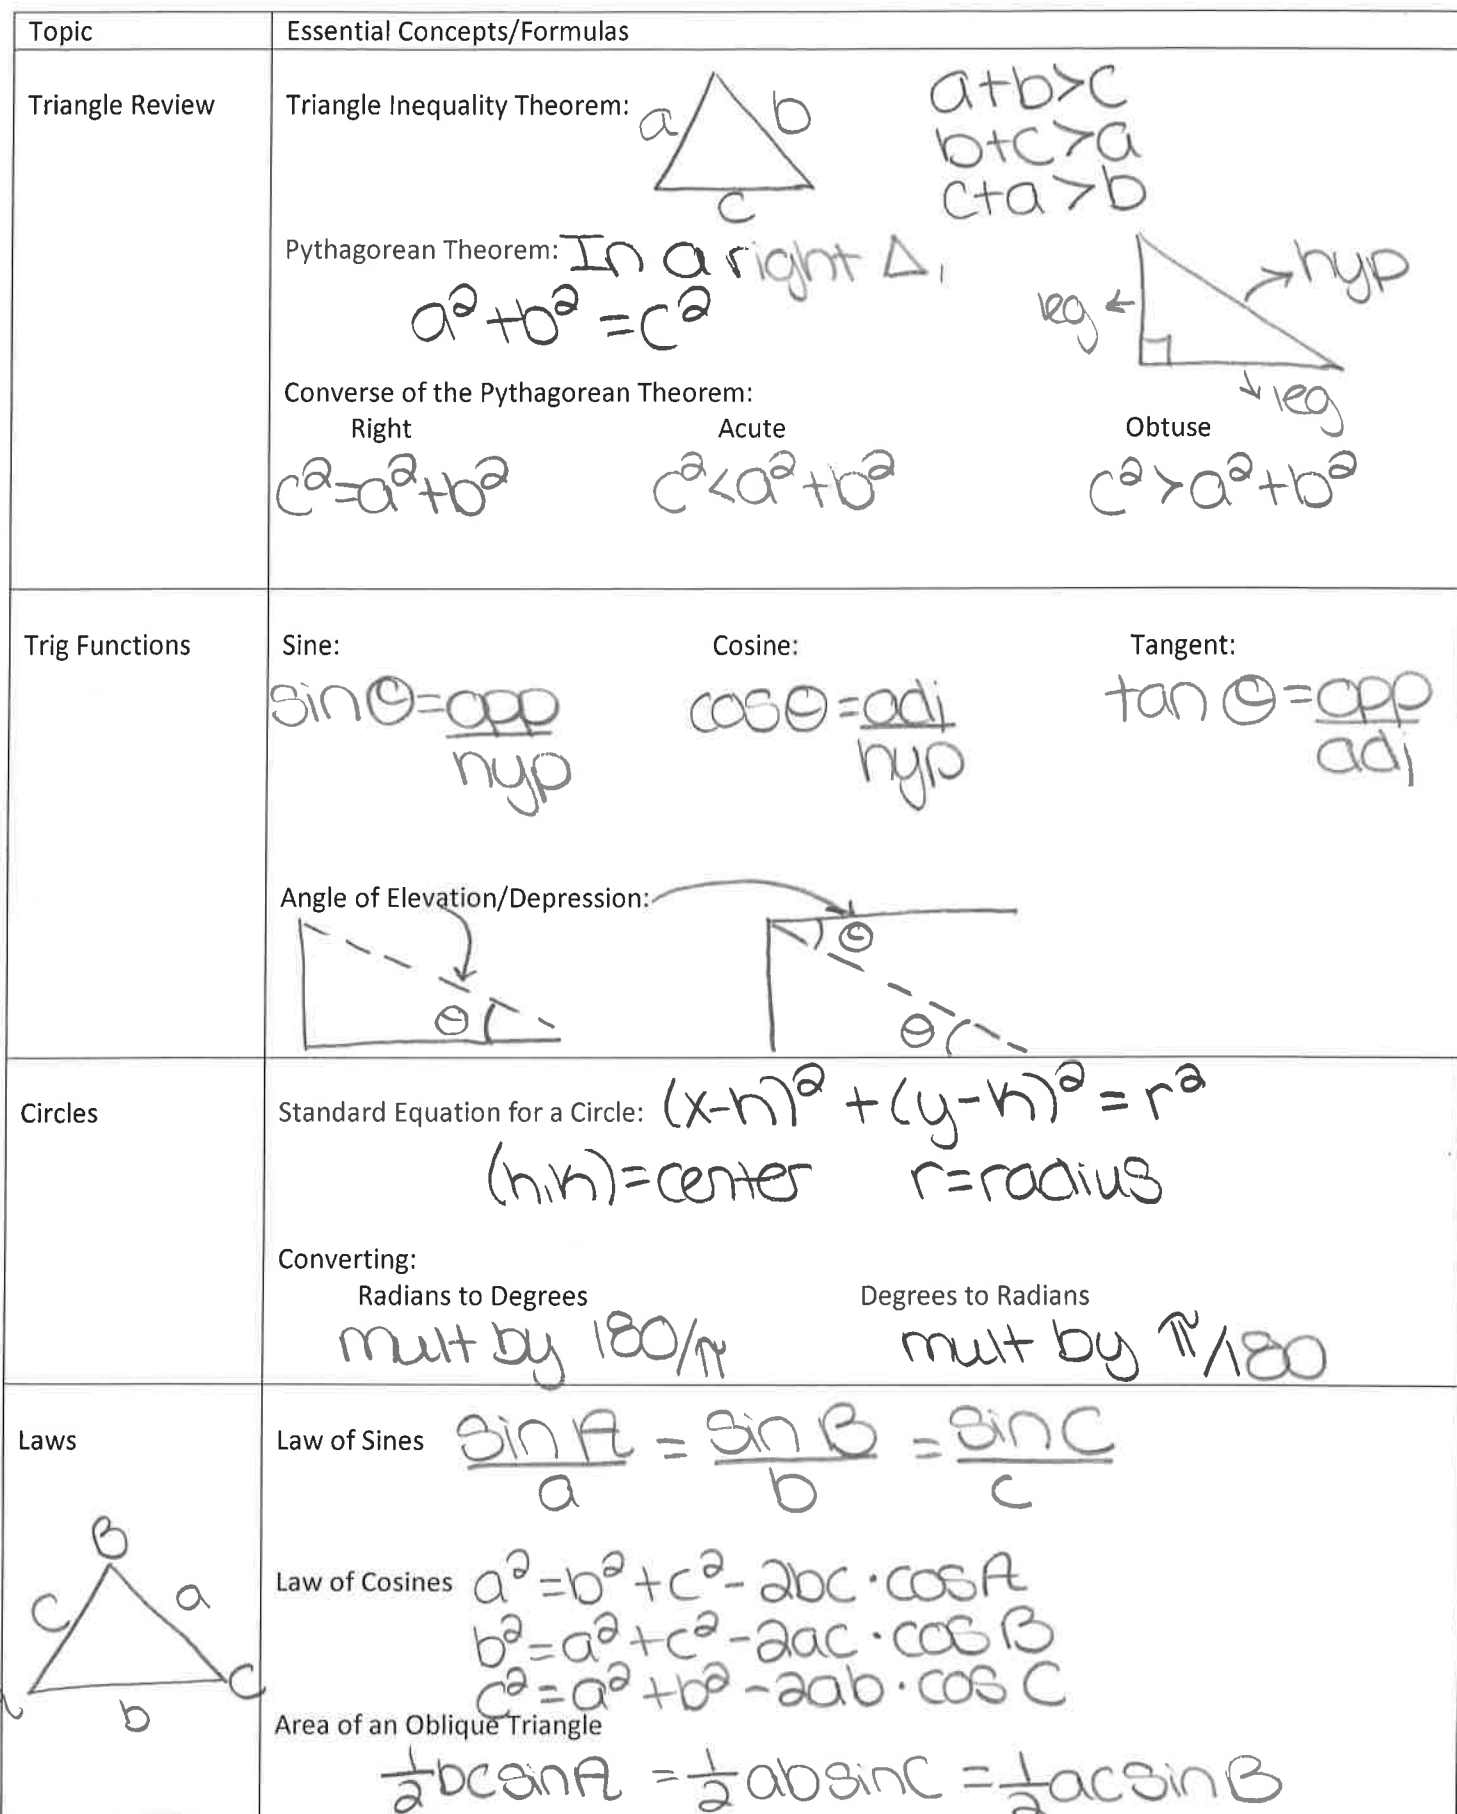 Topic Essential Concepts/Formulas
Triangle Review Triangle Inequality Theorem: a b c
a+b>c
b+c>a
c+a>b
Pythagorean Theorem: In a right Δ,
a²+b²=c²
leg hyp leg
Converse of the Pythagorean Theorem:
Right Acute Obtuse
c²=a²+b² c²<a²+b² c²>a²+b²
Trig Functions Sine: Cosine: Tangent:
sin θ=opp/hyp cos θ=adj/hyp tan θ=opp/adj
Angle of Elevation/Depression:
θ θ θ
Circles Standard Equation for a Circle: (x-h)²+(y-k)²=r²
(h,k)=center r=radius
Converting:
Radians to Degrees Degrees to Radians
mult by 180/π mult by π/180
Laws Law of Sines sin A/a = sin B/b = sin C/c
B
c a
C
b
Law of Cosines a²=b²+c²-2bc·cos A
b²=a²+c²-2ac·cos B
c²=a²+b²-2ab·cos C
Area of an Oblique Triangle
½bcsinA =½absinC =½acsinB